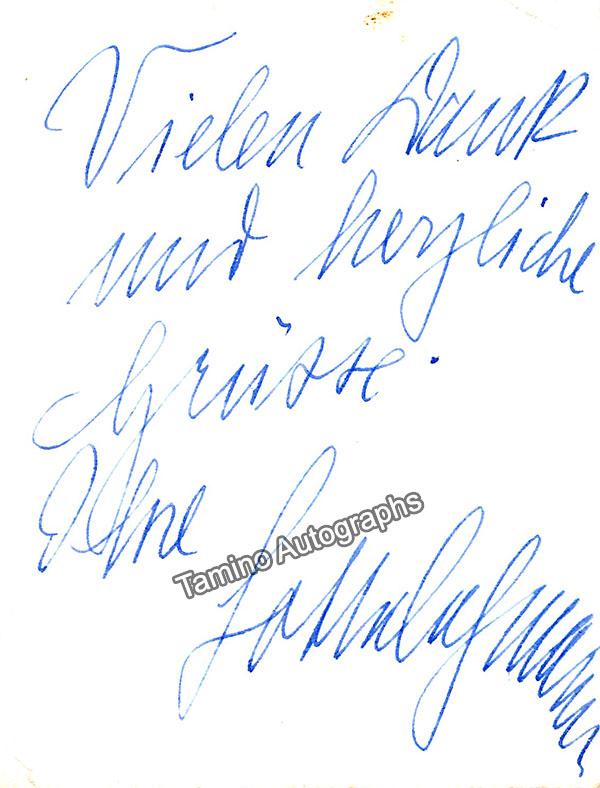 Vielen Dank
und herzliche
Grüsse.
Ihre
Lotte Lehmann
Tamino Autographs